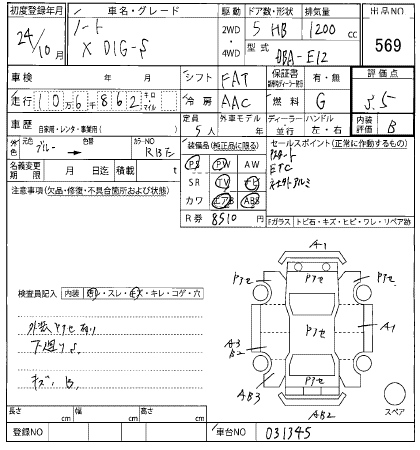 初度登録年月 車名・グレード 駆動 ドア数・形状 排気量 出品NO
24/10月 ノート X DIG-S 2WD・4WD 5 HB 1200cc 569
型式 DBA-E12
車検 年 月 シフト FAT 保証書 有・無 評価点
走行 10万6千862キロマイル 冷房 AAC 燃料 G 3.5
車歴 自家用・レンタ・事業用( ) 定員 5人 外車モデル 年 ディーラー・並行 ハンドル 左・右 内装評価 B
外色 元色 ブルー → 色替 カラーNO RBE
名義変更期限 月 日迄 積載 t
装備品(純正品に限る)
PS PW AW
SR TV ナビ
カワ エアB ABS
R券 8510円
セールスポイント(正常に作動するもの)
Pスタート
ETC
社外アルミ
注意事項(欠品・修復・不具合箇所および状態)
Fガラス トビ石・キズ・ヒビ・ワレ・リペア跡
検査員記入 内装 ヨゴレ・スレ・キズ・キレ・コゲ・穴
外装Pアセあり
下廻りS
キズ B
A1
Pアセ Pアセ Pアセ
A3 B2
A1
Pアセ
AB3
AB2
スペア
長さ cm 幅 cm 高さ cm
登録NO 車台NO 031345